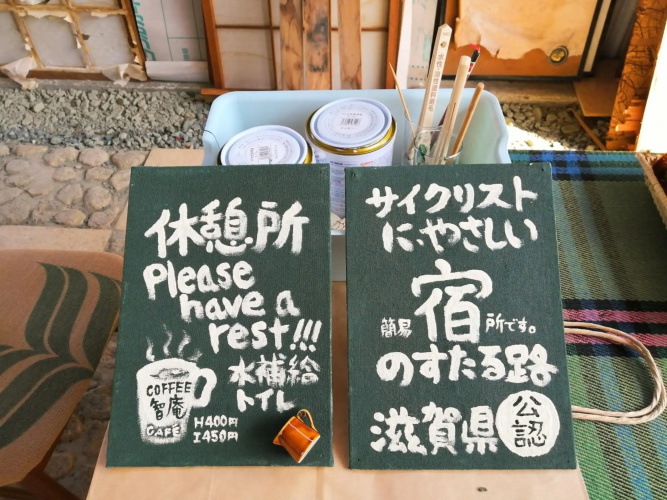 休憩所
Please
have a
rest!!!
水補給
トイレ
COFFEE
智庵
CAFÉ
H400円
I450円
サイクリスト
に、やさしい
簡易宿所です。
のすたる路
滋賀県
公認